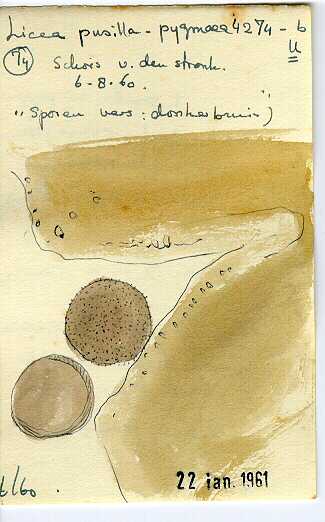 Licea pusilla - pygmaea 4274 - b
7/4 Schors v. den stronk. U
6 - 8 - 60.
"Sporen vers: donkerbruin"
6/60.
22 jan. 1961